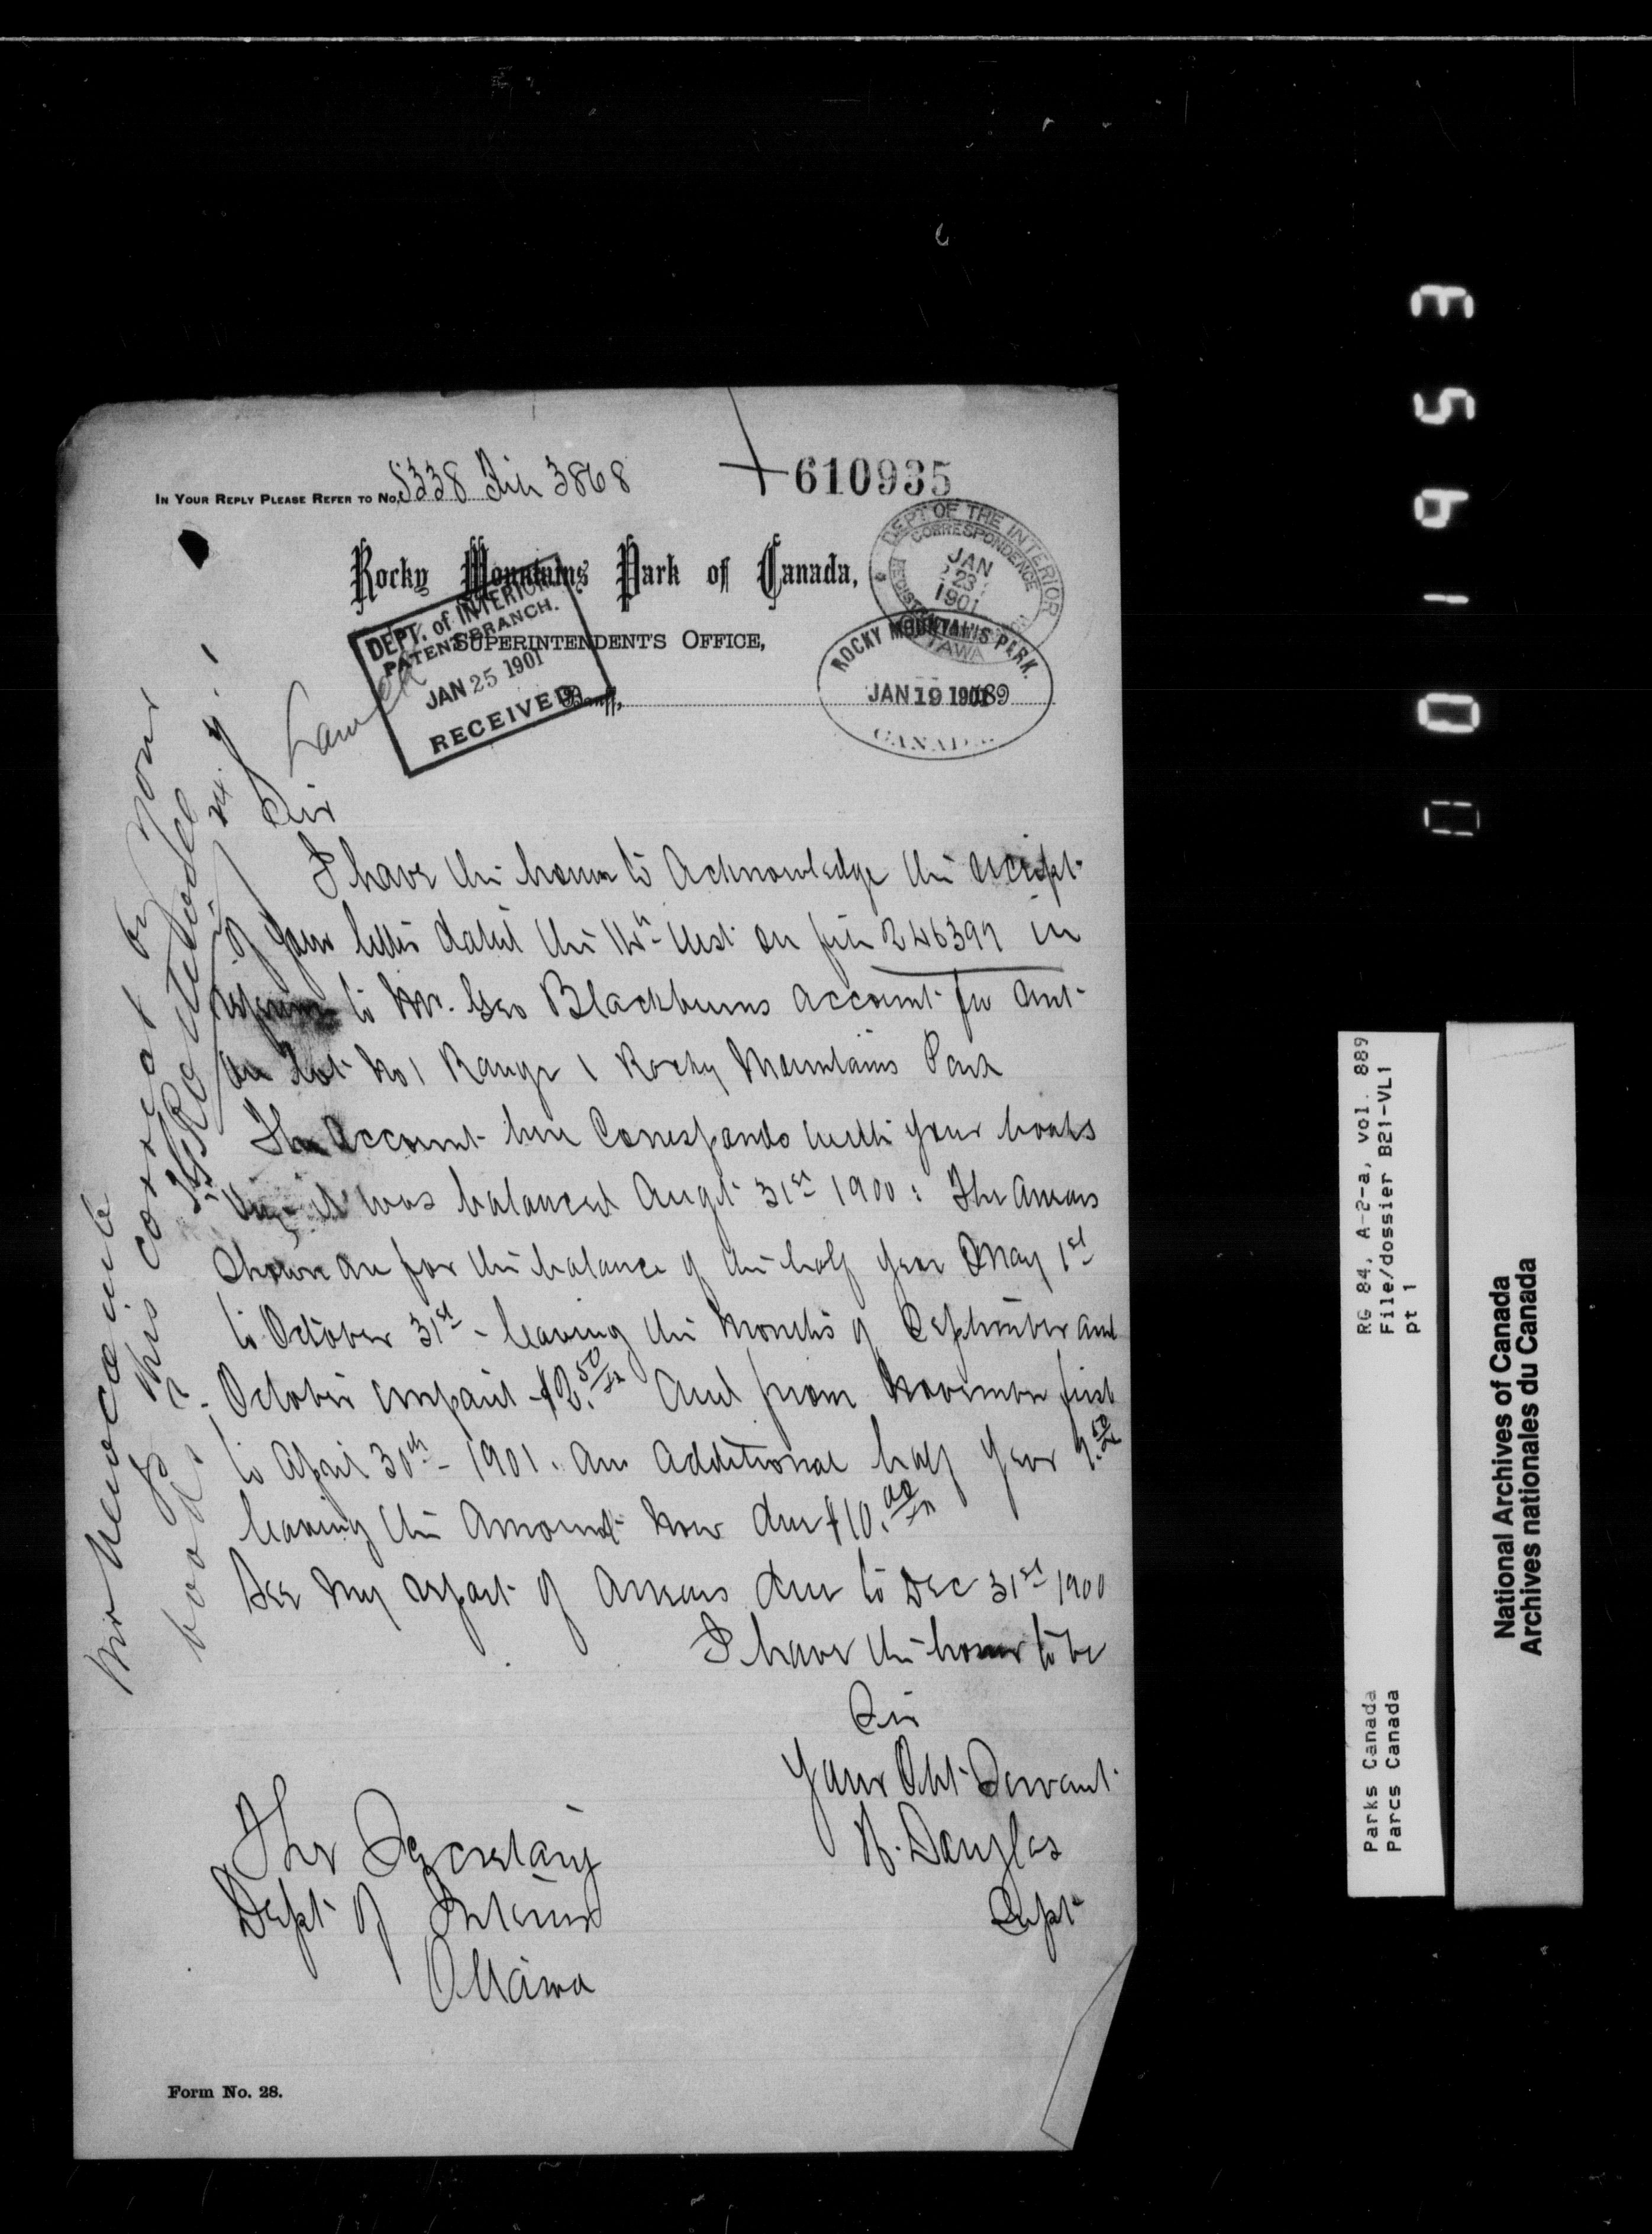 IN YOUR REPLY PLEASE REFER TO No. 5338 File 3868
610935
Rocky Mountains Park of Canada,
SUPERINTENDENT'S OFFICE,
Banff, 189
DEPT OF THE INTERIOR
CORRESPONDENCE
JAN 23 1901
OTTAWA
DEPT. of INTERIOR
PATENT BRANCH.
JAN 25 1901
RECEIVED
ROCKY MOUNTAINS PARK.
JAN 19 1901
CANADA
Sir
I have the honor to Acknowledge the receipt
of your letter dated the 14th Inst on file 246399 in
reference to Mr. Geo Blackburns account for rent
on Lot No 1 Range 1 Rocky Mountains Park
The account here Corresponds with your books
it was balanced Augt 31st 1900: The arrears
shown are for the balance of the half year May 1st
to October 31st - leaving the months of September and
October unpaid $2.50 and from November first
to April 30th - 1901. an additional half year 7.50
leaving the Amount now due $10.00
See my report of Arrears due to Dec 31st 1900
I have the honor to be
Sir
Your Obt Servant
H. Douglas
Supt
The Secretary
Dept of Interior
Ottawa
Form No. 28.
Mr
Is this correct by your
books?
0019653
RG 84, A-2-a, vol. 889
File/dossier B21-VL1
pt 1
Parks Canada
Parcs Canada
National Archives of Canada
Archives nationales du Canada